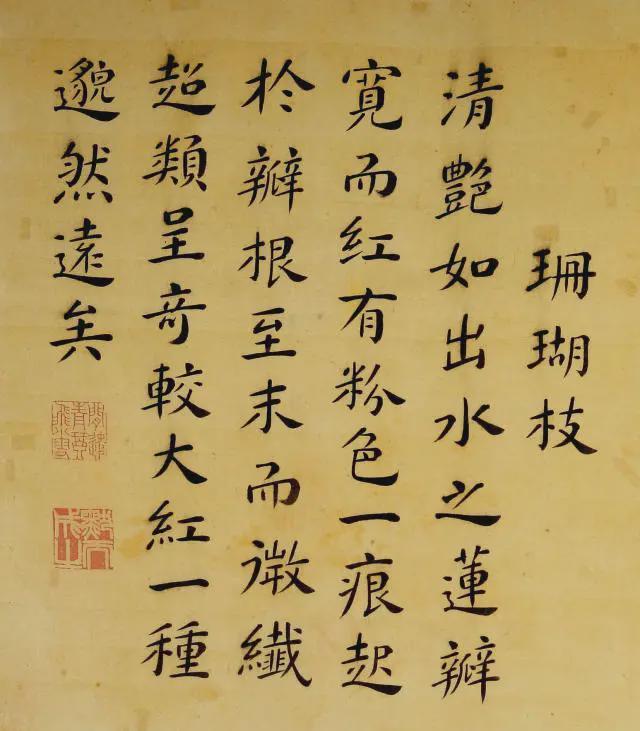 珊瑚枝
清艷如出水之蓮瓣
寛而红有粉色一痕起
於瓣根至末而微纖
超類呈奇較大紅一種
邈然遠矣